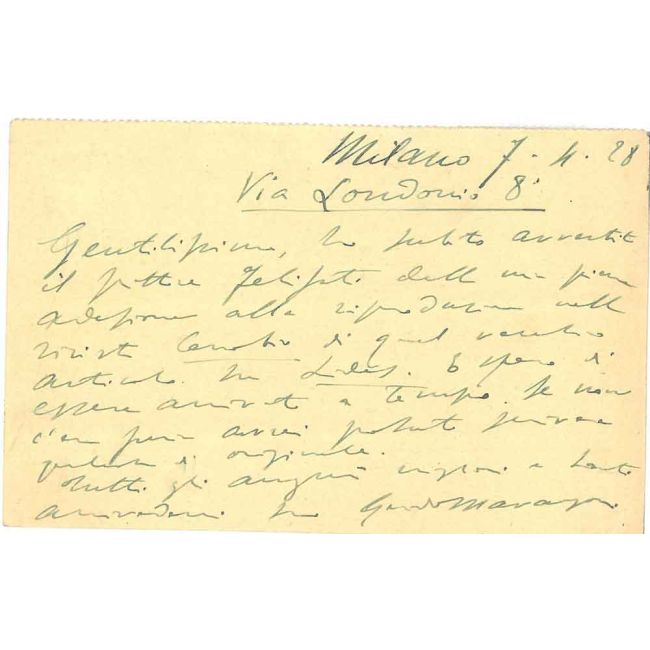 Milano 7. 4. 28
Via Londonio 8
Gentilissimo, ho subito avvertito
il pittore della mia piena
adesione alla riproduzione nella
rivista di quel vecchio
articolo su Spero di
essere arrivato a tempo. Se non
c'era avrei potuto scrivere
qualcosa di originale.
Tutti gli auguri migliori e tanti
suo Guido Marangoni